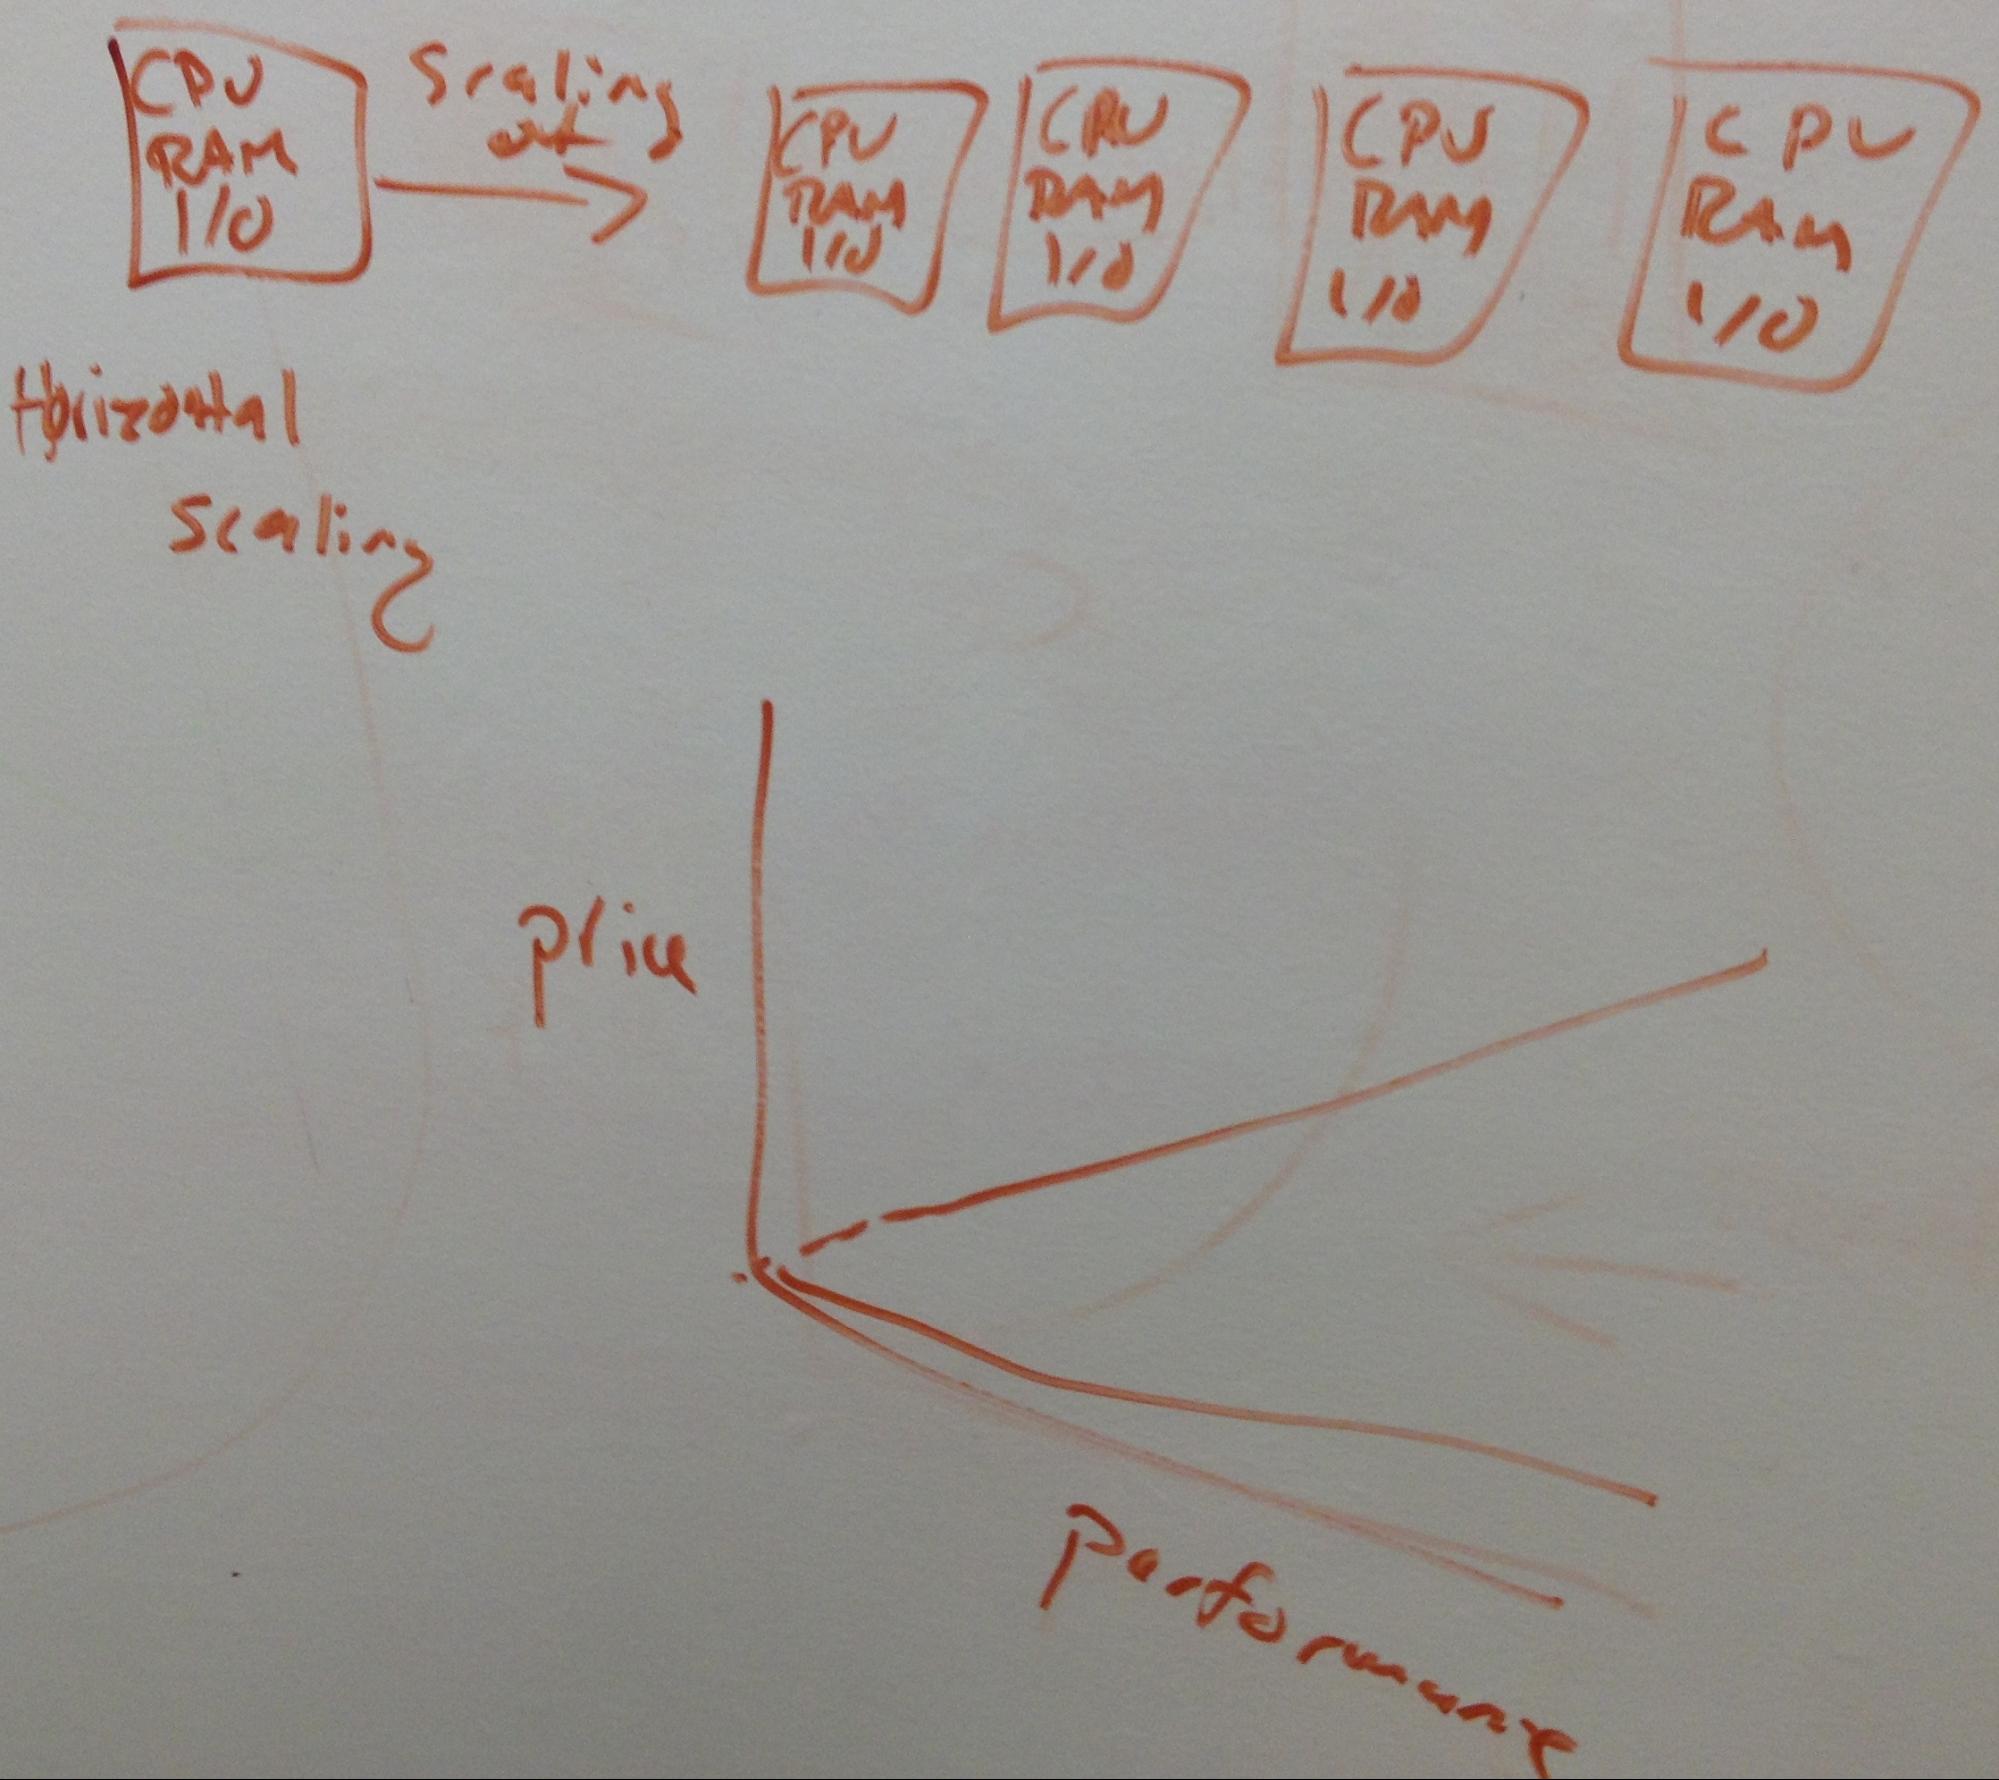 CPU
RAM
I/O
Scaling
out
CPU
RAM
I/O
CPU
RAM
I/O
CPU
RAM
I/O
CPU
RAM
I/O
Horizontal
Scaling
price
performance